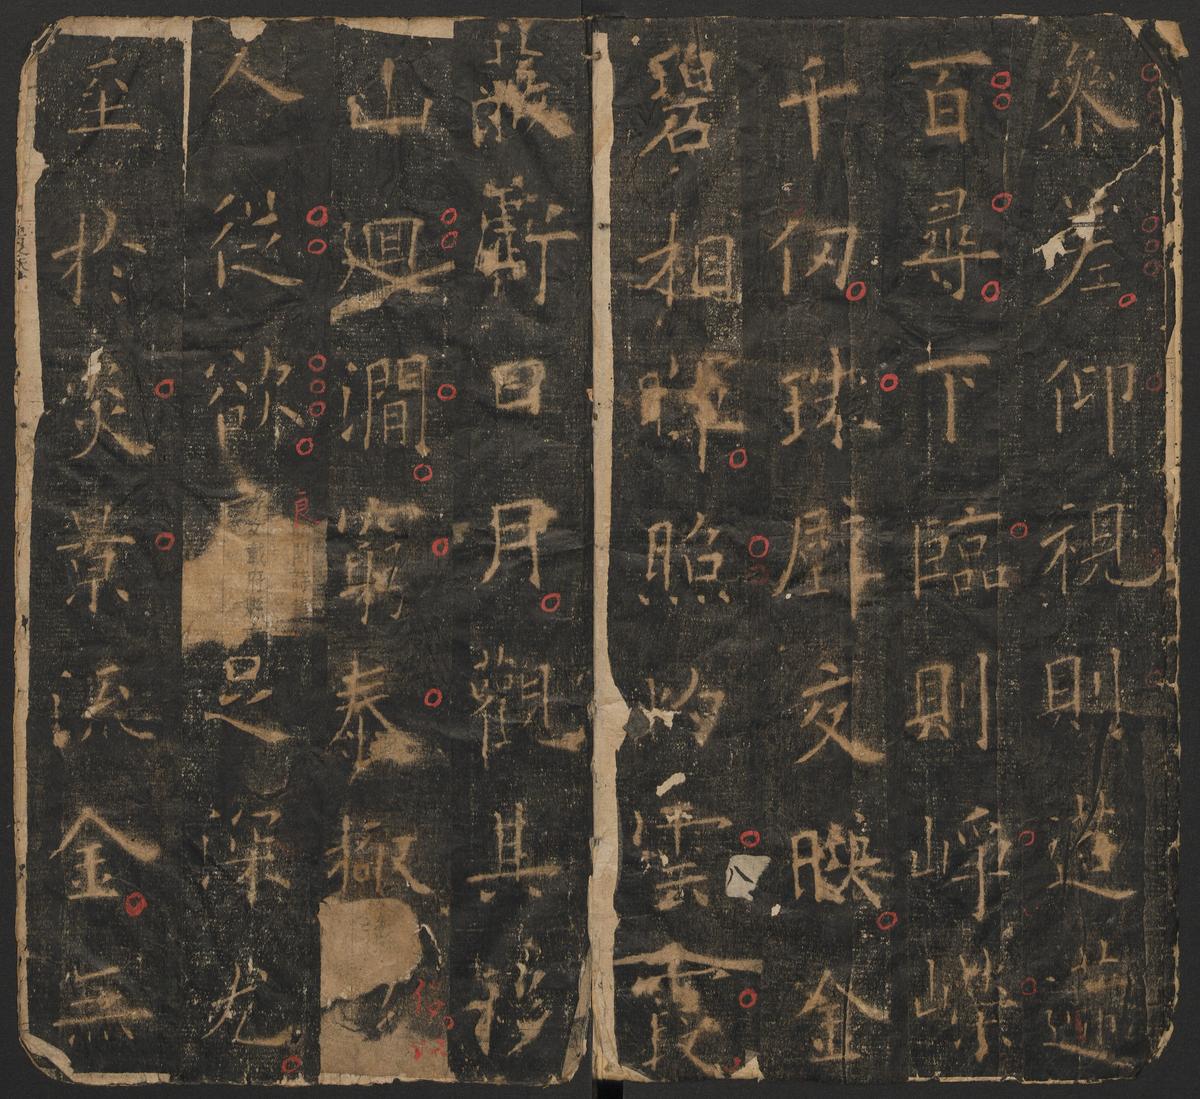 參差仰視則迢遰
百尋下臨則崢嶸
千仞珠壁交映金
碧相暉照灼雲霞
蔽虧日月觀其移
山迴澗窮泰極侈
人從欲良足深尤
至於炎景流金無